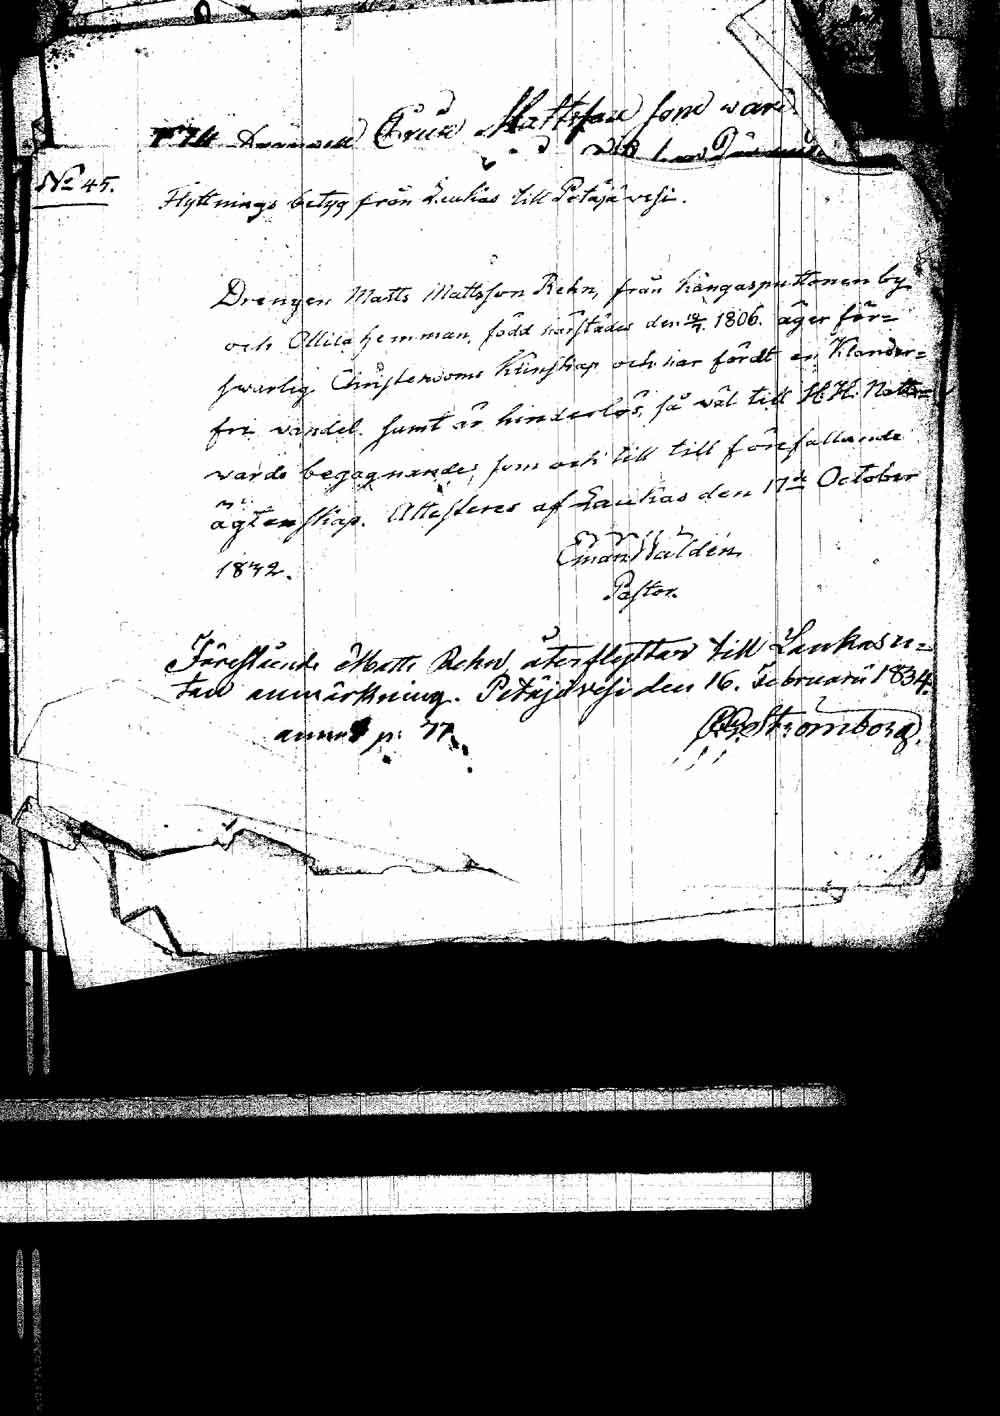 Mattsson som ward
No 45.
Flyttnings betyg från Laukas till Petäjävesi.
Drengen Matts Mattsson Rehn, från Kangasputtonen by
och Ollila hemman, född härstädes den 1806. äger för=
swarlig Christendoms Kunskap och har fördt en Klander=
fri vandel. samt är hinderlös, så väl till H. H. Natt=
wards begagnande, som och till till förefallande
ägtenskap. Attesteres af Laukas den 17de October
1832. Eman Waldén
Pastor.
Förestånde Matts Rehn, återflyttar till Laukas u=
tan anmärkning. Petäjävesi den 16. Februarii 1834.
p. 77. Strömborg.